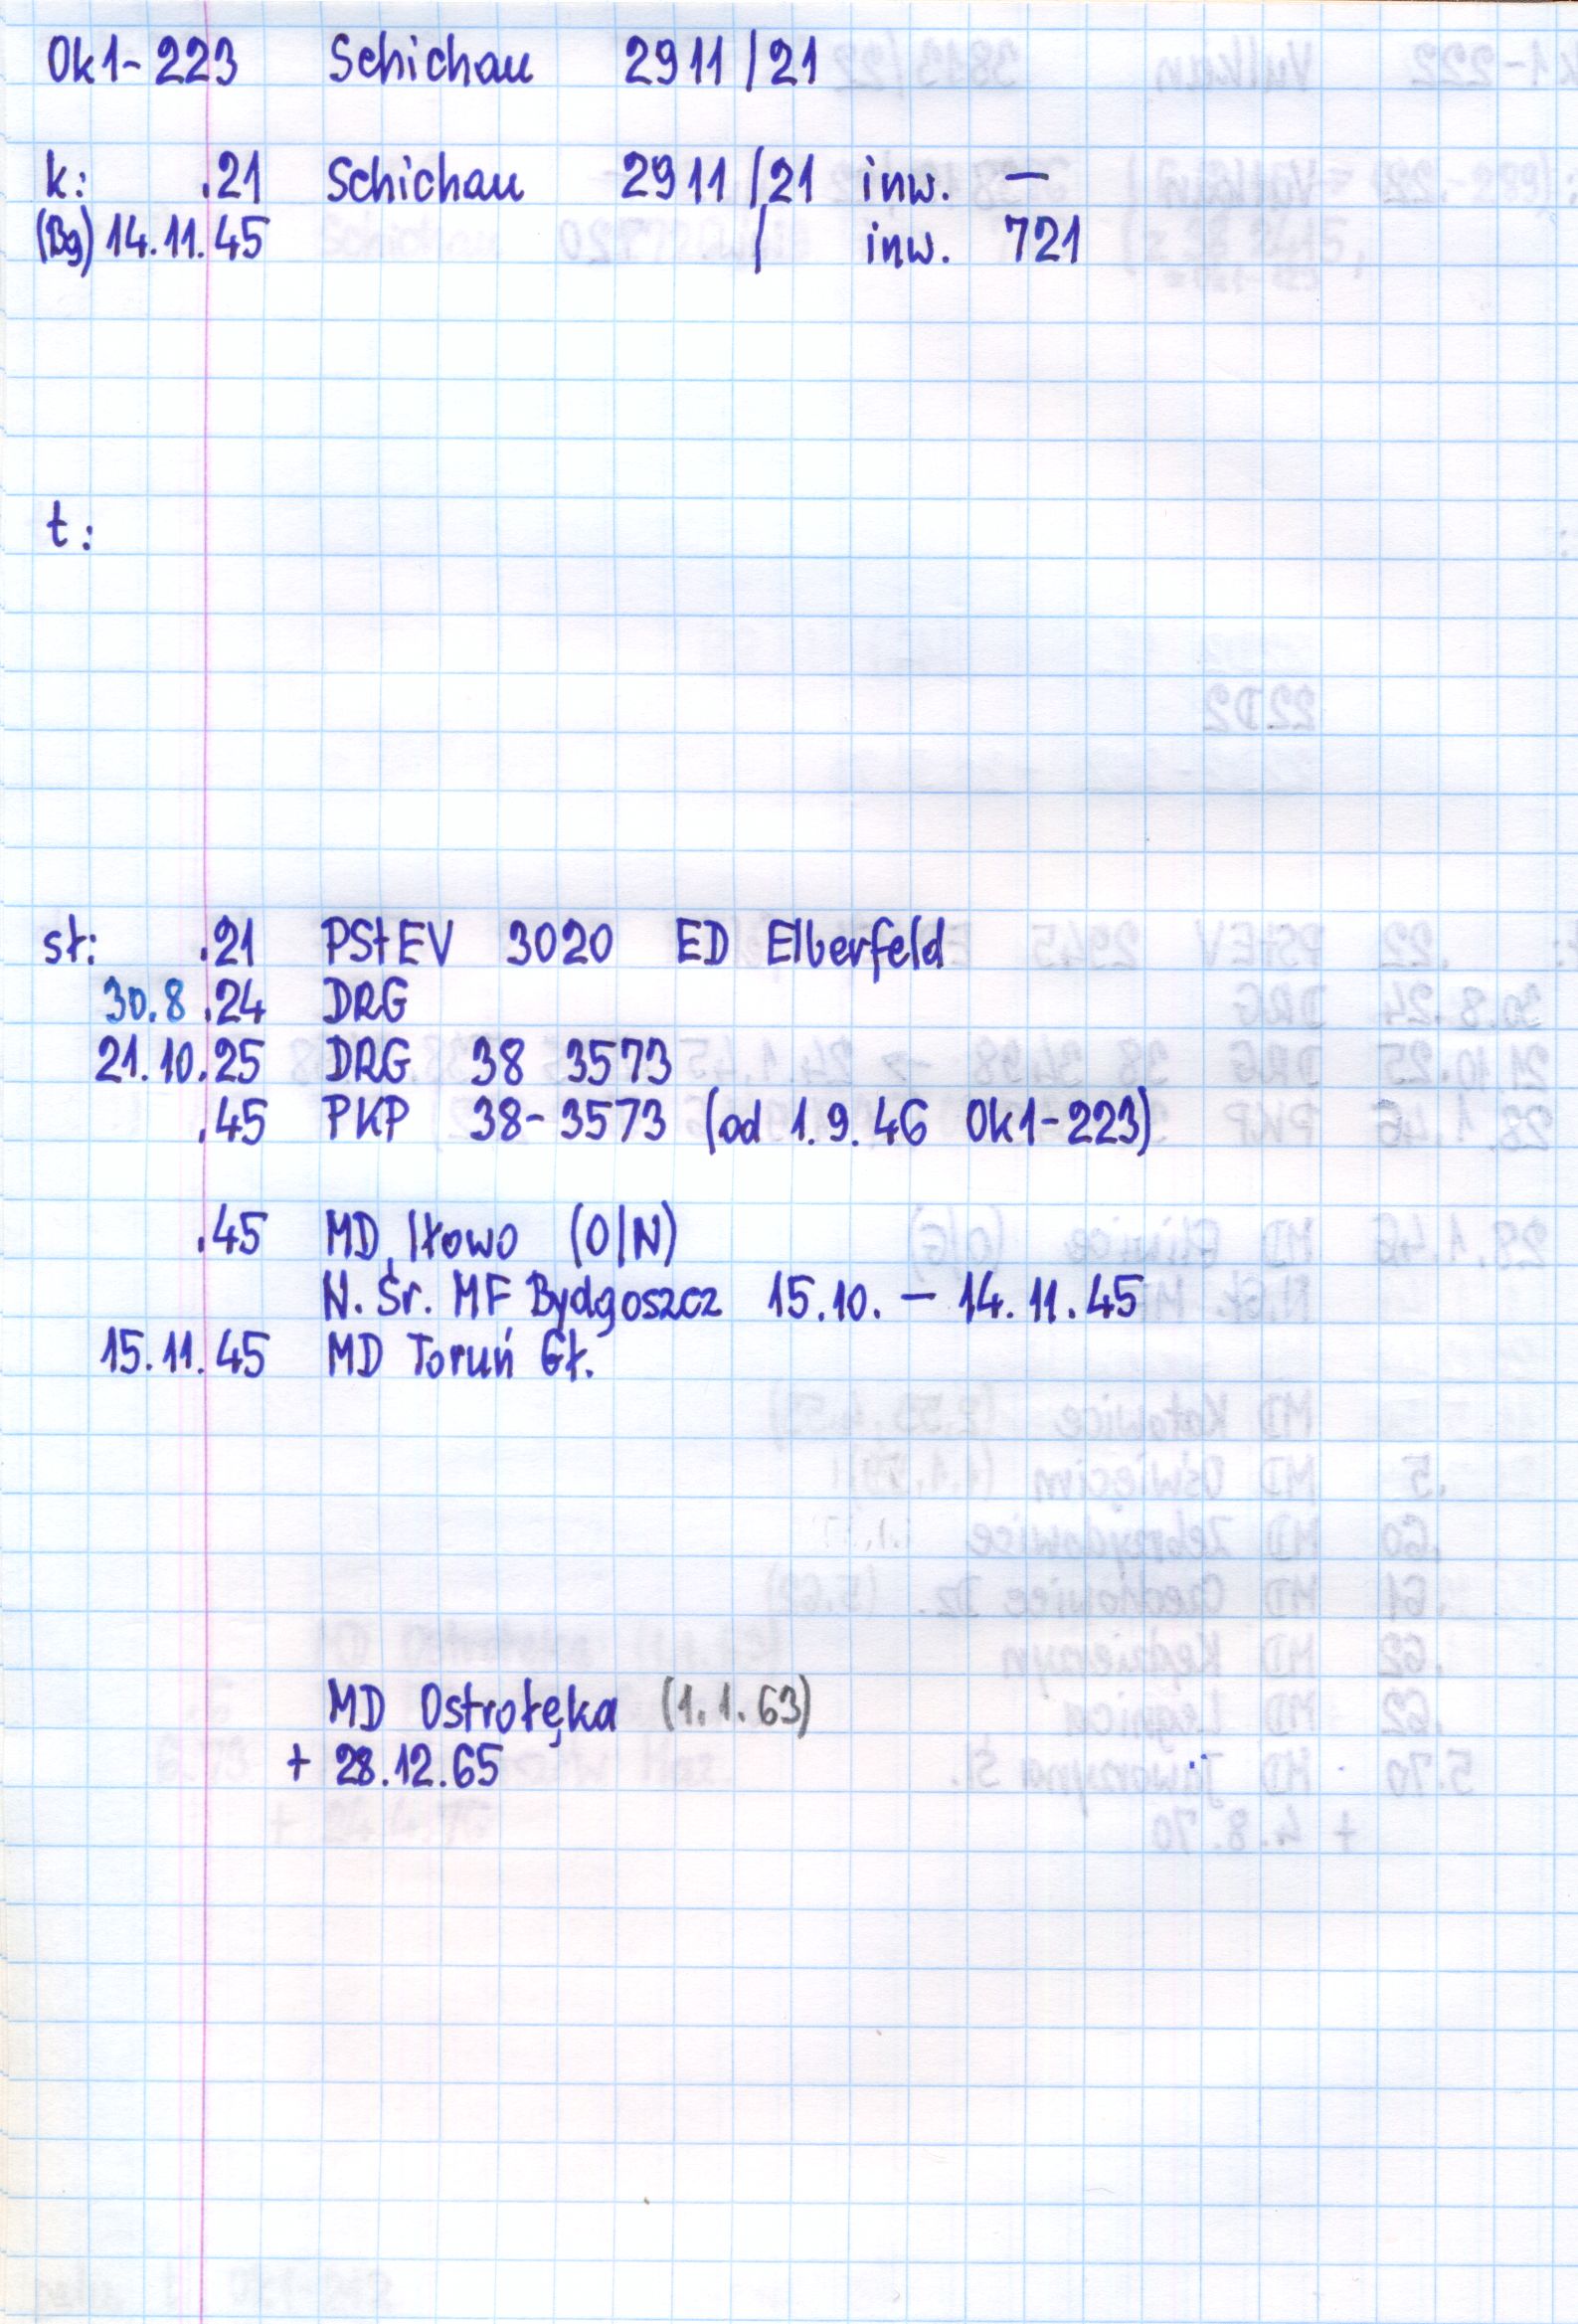 Ok1-223 Schichau 2911/21
k: .21 Schichau 2911/21 inw. —
(Bg) 14.11.45 / inw. 721
t:
st: .21 PStEV 3020 ED Elberfeld
30.8.24 DRG
21.10.25 DRG 38 3573
.45 PKP 38-3573 (od 1.9.46 Ok1-223)
.45 MD Iłowo (O/N)
N. Śr. MF Bydgoszcz 15.10. — 14.11.45
15.11.45 MD Toruń Gł.
MD Ostrołęka (1.1.63)
+ 28.12.65